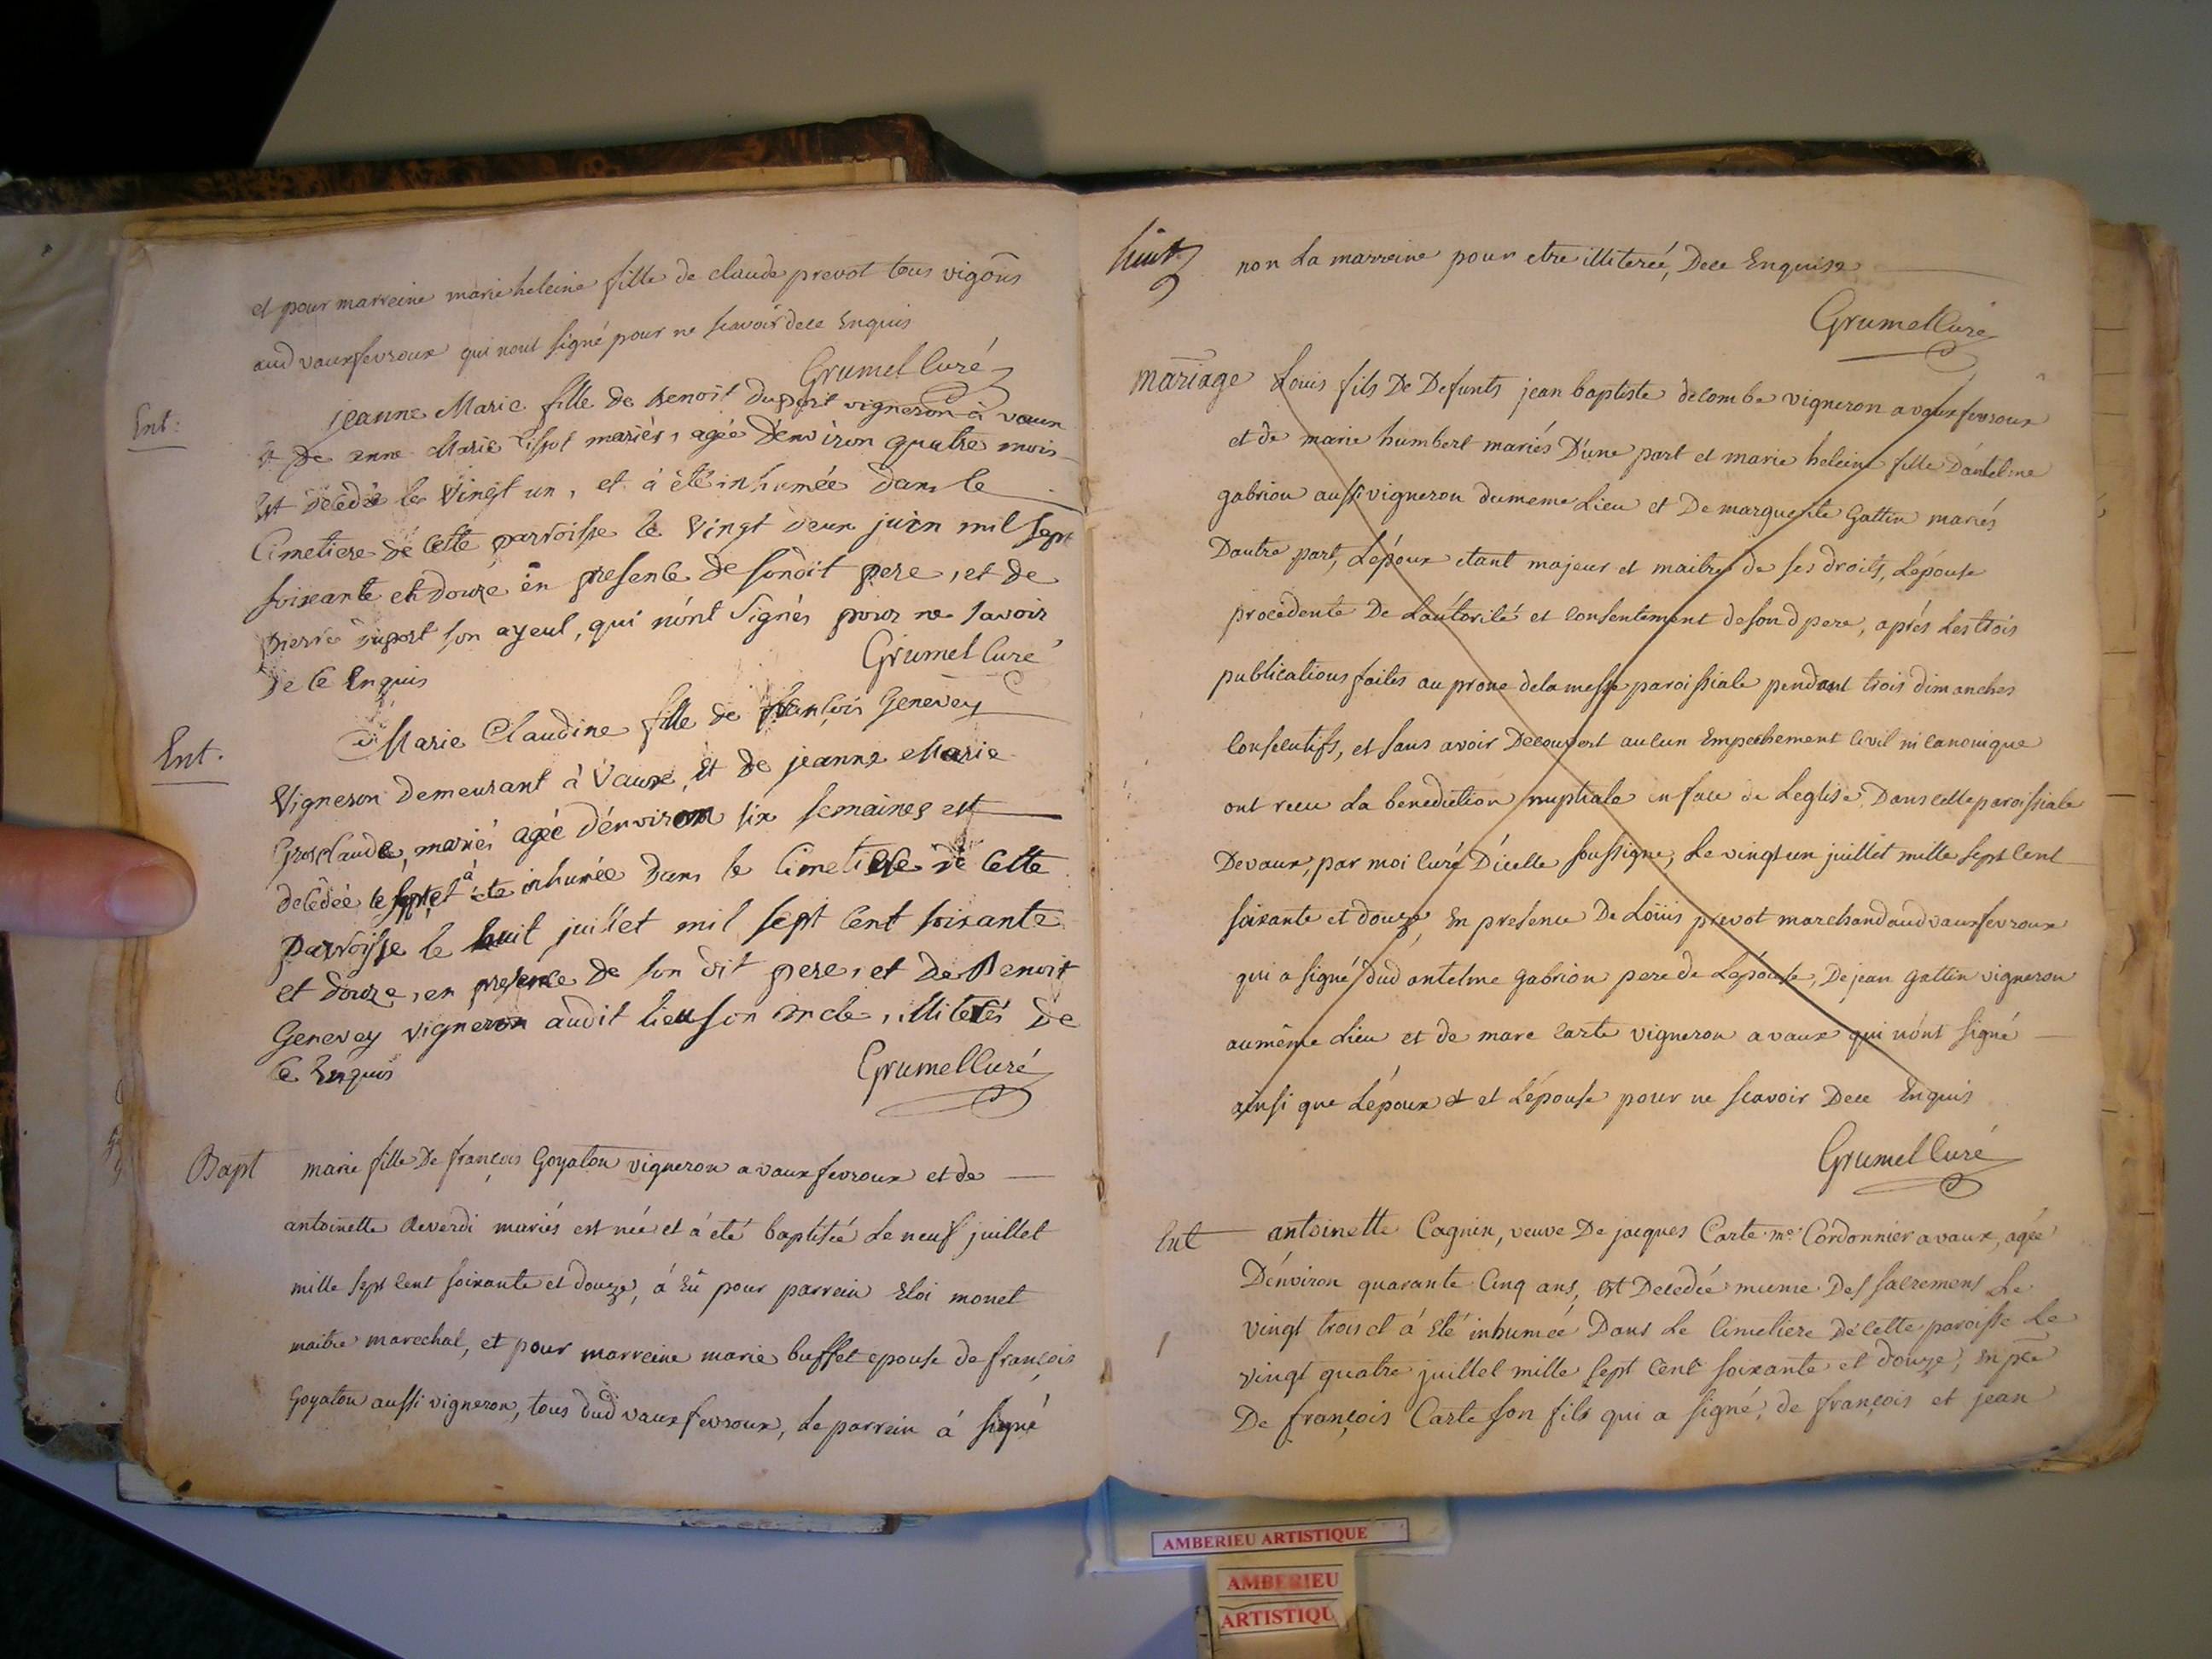 et pour marreine marie heleine fille de claude prevot tous vigōns
aud vauxfevroux qui nont signé pour ne scavoir dece Enquis
Grumel Curé
Ent:
jeanne Marie fille de Benoit duport vigneron à vaux
et De anne Marie tissot mariés, agée D'environ quatre mois
est décédée le Vingt un, et à été inhumée dans le
Cimetiere de Cette parroisse le Vingt deux juin mil sept
soixante et douze en presence de sondit pere, et de
pierre duport son ayeul, qui n'ont Signés pour ne savoir
De Ce Enquis
Grumel Curé
Ent.
Marie Claudine fille de françois Genevey
Vigneron Demeurant à Vaux, Et de jeanne Marie
Grosclaude, mariés agée d'environ six semaines est
décédée le sept et à été inhumée dans le Cimetiere de Cette
parroisse le huit juillet mil sept cent soixante
et douze, en presence de son dit pere, et De Benoit
Genevey vigneron audit lieu son oncle, illiterés De
Ce Enquis
Grumel Curé
Bapt
marie fille De françois Goyaton vigneron a vauxfevroux et de
antoinette Reverdi mariés est née et à eté baptisée Le neuf juillet
mille sept cent soixante et douze, à Eû pour parrein Eloi monet
maitre marechal, et pour marreine marie buffet epouse de françois
Goyaton aussi vigneron, tous dud vauxfevroux, Le parrein à signé
huit
non La marreine pour etre illiterée, Dece Enquise
Grumel Curé
mariage
Louis fils De Defunts jean baptiste decombe vigneron a vauxfevroux
et de marie humbert mariés D'une part et marie heleine fille D'antelme
gabrion aussi vigneron dumeme Lieu et De marguerite Gattin mariés
Dautre part, L'epoux etant majeur et maitre de ses droits, L'épouse
procédente De L'autorité et consentement desond pere, aprés Les trois
publications faites au prone dela messe paroissiale pendant trois dimanches
consecutifs, et sans avoir Decouvert aucun Empechement Civil ni Canonique
ont recu La benediction nuptiale en face de Leglise, Dans cette paroissiale
Devaux, par moi Curé D'icelle soussigné, Le vingt un juillet mille sept cent
soixante et douze, En presence De Loüis prevot marchand aud vauxfevroux
qui a signé, dud antelme gabrion pere de Lepouse, De jean gattin vigneron
aumême Lieu et de marc Carte vigneron a vaux qui n'ont signé
ainsi que L'epoux et et L'épouse pour ne scavoir Dece Enquis
Grumel Curé
Ent
antoinette Cagnin, veuve De jacques Carte me Cordonnier a vaux, agée
D'environ quarante Cinq ans, est Decedée munie Des sacremens Le
vingt trois et à Eté inhumée Dans Le Cimetiere De cette paroisse Le
vingt quatre juillet mille sept Cent soixante et douze, En pce
De françois Carte son fils qui a signé, de françois et jean
AMBERIEU ARTISTIQUE
AMBERIEU
ARTISTIQU